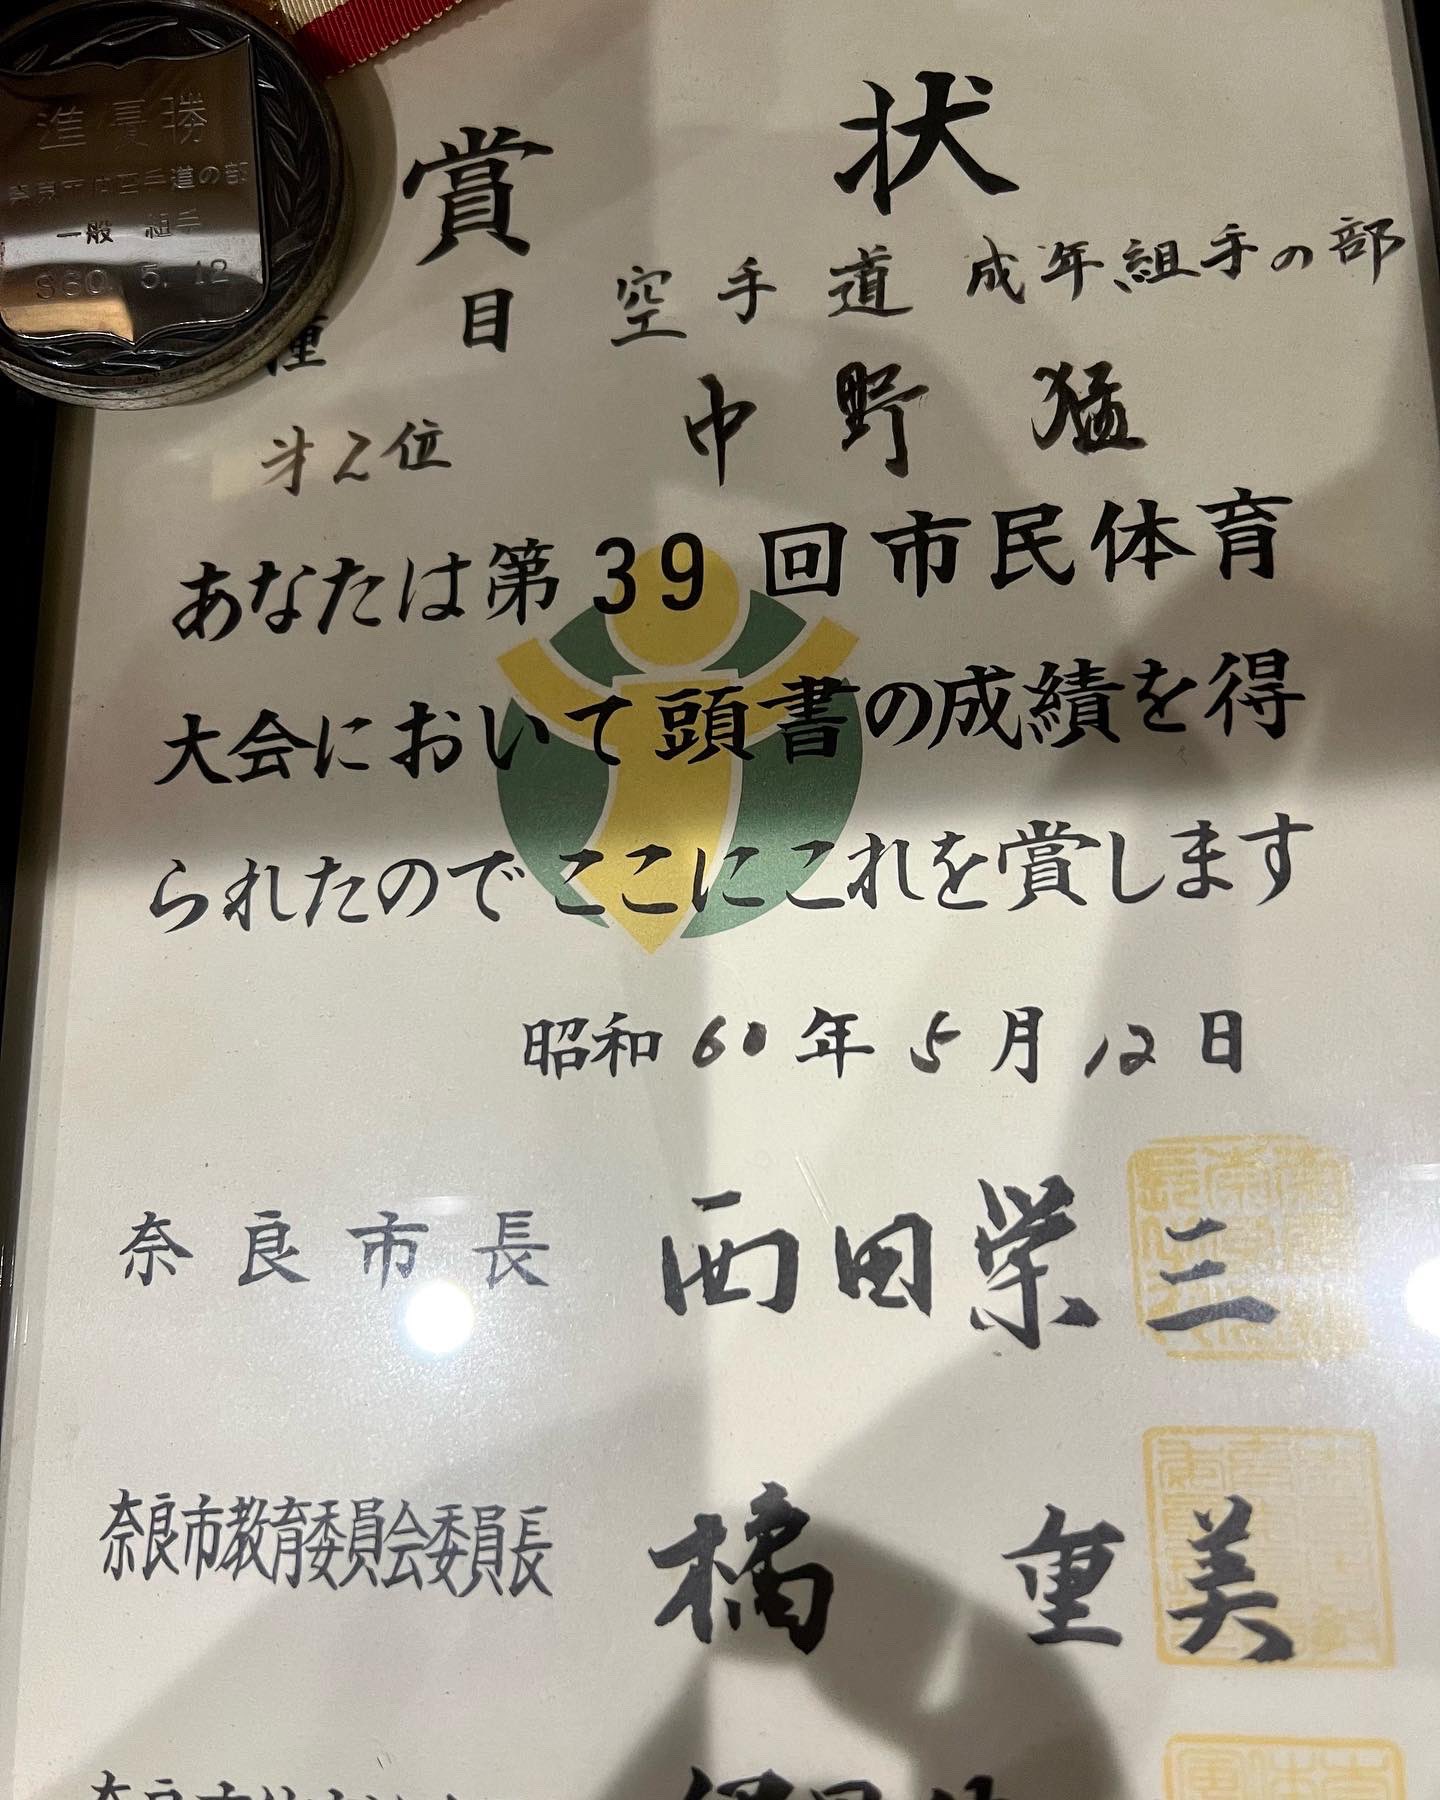 準優勝
一般 組手
S60. 5. 12
賞状
種目 空手道 成年組手の部
才2位 中野猛
あなたは第39回市民体育
大会において頭書の成績を得
られたのでここにこれを賞します
昭和60年5月12日
奈良市長 西田栄三
奈良市教育委員会委員長 橘重美